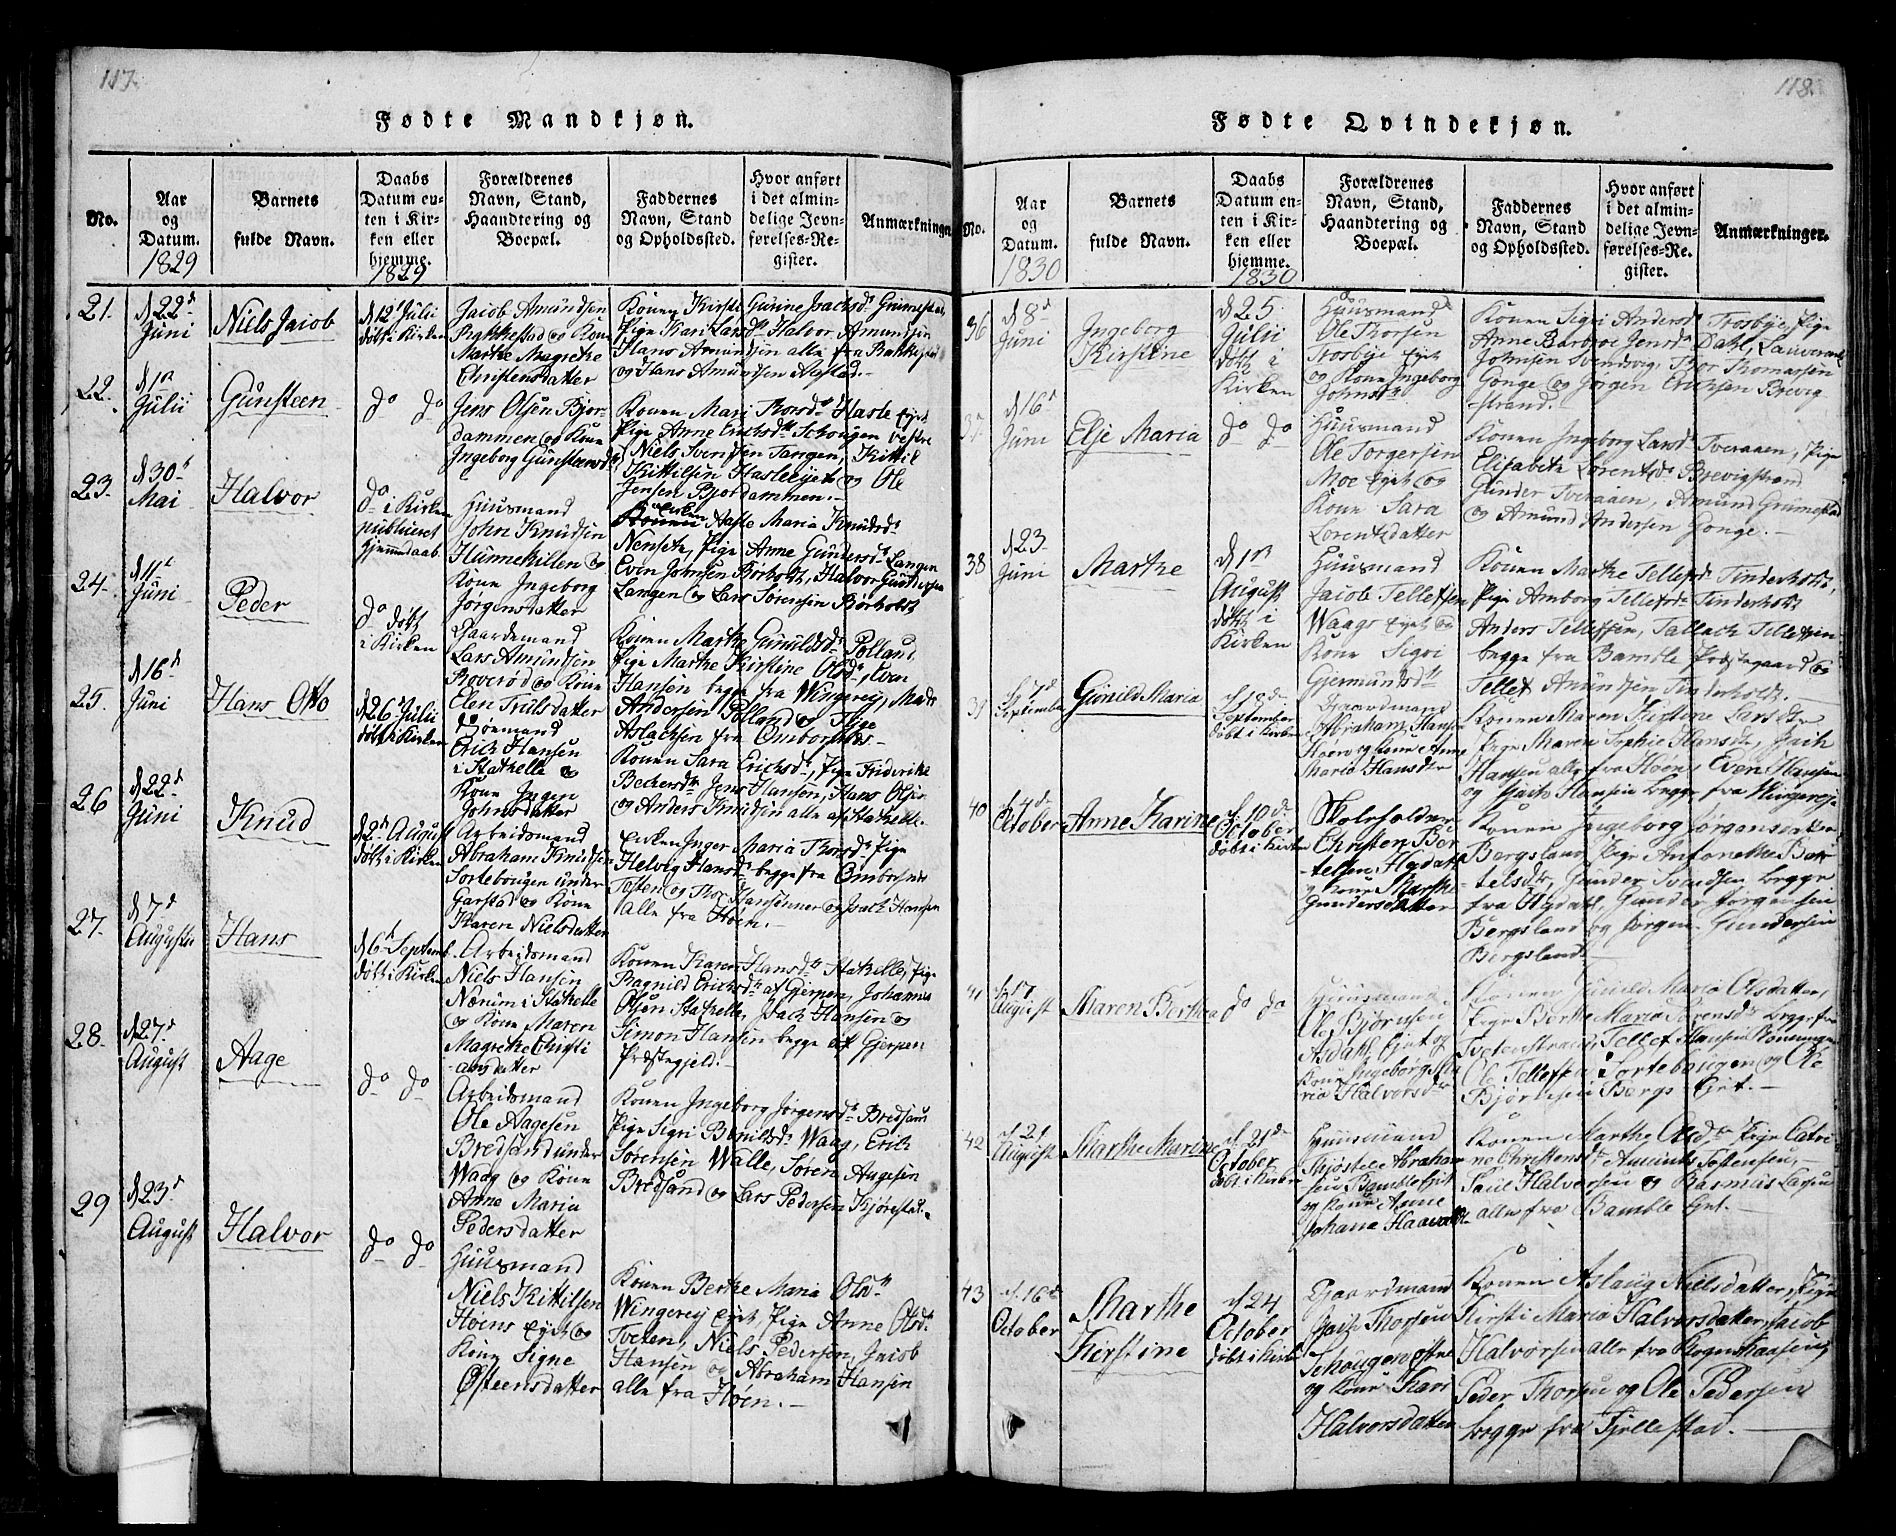 117.
Fødte Mandkjøn.
No.
Aar og Datum. 1829
Barnets fulde Navn.
Daabs Datum enten i Kirken eller hjemme. 1829
Forældrenes Navn, Stand, Haandtering og Boepæl.
Faddernes Navn, Stand og Opholdssted.
Hvor anført i det almindelige Jevnførelses-Register.
Anmærkninger
21.
d 22d
Juni
Niels Jacob
d 12t Julii
døbt i Kirken
Jacob Amundsen
Rakkestad og Kone
Marthe Magrethe
Christensdatter
Konen Kirsti Gurine Isachsdr Grumestad,
Pige Kari Larsdtr Halvor Amundsen
Hans Amundsen alle fra Rakkestad
og Hans Amundsen
22.
d 1n
Julii
Gunsteen
do do
Jens Olsen Bjor-
dammen og Kone
Ingeborg Gunsteensdr
Konen Mari Thorsdr Hasle Eiet
Pige Anne Erichsdtr Schougen vestre
Niels Svensen Tangen, Kittil
Kittilsen Hasleeyet og Ole
Jensen Bjordammen.
23.
d 30t
Mai
Halvor
do i Kirken
publiceret
hjemmedaab.
Huusmand
John Knudsen
Hunnekillen og
Kone Ingeborg
Jørgensdatter
Enken Aasle Maria Knudsdr
Nenseth, Pige Anne Gundersdr Langen
Even Johnsen Børholt, Halvor Gundersen
Langen og Lars Sørensen Børholt
24.
d 11t
Juni
Peder
do døbt
i Kirken
Gaardemand
Lars Amundsen
Roverød og Kone
Elen Trulsdatter
Konen Marthe Gunildsdr Polland,
Pige Marthe Kirstine Olsdr, Even
Hansen begge fra Wingerej, Mads
Andersen Polland og Thge
Aslachsen fra Omborsnes
25.
d 16d
Juni
Hans Otto
d 26t Julii
døbt i Kirken
Søemand
Erich Hansen
i Stathelle og
Kone Ingen
Johnsdatter
Konen Sara Erichsdr, Pige Friderike
Beckersdtr Jens Hansen, Hans Olsen
og Anders Knudsen alle af Stathelle.
26
d 22d
Juni
Knud
d 2d August
døbt i Kirken
Arbeidsmand
Abraham Knudsen
Sortebougen under
Garstad og Kone
Karen Nielsdatter
Enken Inger Maria Thorsdr Pige
Helvig Hansdr begge fra Omborsnes
Tosten og Thor Hansønner og Isach Hansen
alle fra Høen.
27.
d 7d
Augusti
Hans
d 6t Septemb
døbt i Kirken
Arbeidsmand
Niels Hansen
Nænim i Stathelle
og Kone Maren
Magrethe Christi
-ansdatter
Konen Karen Hansdtr Stathelle, Pige
Ragnild Erichsdtr af Gjerpen, Johannes
Olsen Stathelle, Isach Hansen og
Simon Hansen begge af Gjerpen
Præstegjeld.
28.
d 27d
August
Aage
do do
Arbeidsmand
Ole Aagesen
Bredsand under
Waag og Kone
Anne Maria
Pedersdatter
Konen Ingeborg Jørgensdtr Bredsand
Pige Sigri Bonildsdr Waag, Erich
Sørensen Walle, Søren Aagesen
Bredsand og Lars Pedersen Kjørestad.
29
d 23d
August
Halvor
do do
Huusmand
Niels Kittilsen
Høens Eyet og
Kone Signe
Østeensdatter
Konen Berthe Maria Olsdtr
Wingerej Eyet, Pige Anne Olsdr
Tveten, Niels Pedersen, Jacob
Hansen og Abraham Hansen
alle fra Høen.
118.
Fødte Qvindekjøn.
No.
Aar og Datum. 1830
Barnets fulde Navn.
Daabs Datum enten i Kirken eller hjemme. 1830
Forældrenes Navn, Stand, Haandtering og Boepæl.
Faddernes Navn, Stand og Opholdssted.
Hvor anført i det almindelige Jevnførelses-Register.
Anmærkninger.
36
d 8d
Juni
Ingeborg
Kirstine
d 25
Julii
døbt i
Kirken
Huusmand
Ole Thorsen
Trosbye Eyet
og Kone Ingeborg
Johnsdtr
Konen Sigri Andersdr Trosbye, Pige
Anne Barbroe Jensdr Dahl, Lauverandt
Johnsen Svendsvig, Thor Thomassen
Gonge og Jørgen Erichsen Brevig
-strand.
37
d 16d
Juni
Elsje Maria
do do
Huusmand
Ole Torgersen
Moe Eyet og
Kone Sara
Lorentsdatter
Konen Ingeborg Larsdr Tveraaen, Pige
Elisabeth Lorentsdr Brevigstrand
Gunder Tveraaen, Amund Grumestad
og Amund Andersen Gonge.
38
d 23
Juni
Marthe
d 1n
August
døbt i
Kirken
Huusmand
Jacob Tellefsen
Waags Eyet og
Kone Sigri
Gjermundsdtr
Konen Marthe Tellefsdr Tinderholt,
Pige Amborg Tellefsdr Tinderholt
Anders Tellefsen, Tallach Tellefsen
begge fra Bamble Præstegaard og
Tellef Amundsen Tinderholt.
39
d 7d
September
Gunild Maria
d 19d
September
døbt i Kirken
Gaardmand
Abraham Hansen
Hoen og Kone Anne
Maria Hansdtr
Konen Maren Kirstine Larsdtr
Pige Maren Sophie Hansdtr, Isach
Hansen alle fra Hoen, Even Hansen
og Isach Hansen begge fra Wingereje
40
d 4d
October
Anne Karine
d 10d
October
døbt i Kirken
Skoleholder
Christen Ber-
telsen Hydalt
og Kone Marthe
Gundersdatter
Konen Ingeborg Jørgensdatter
Bergsland, Pige Antonette Ber-
telsdtr, Gunder Svendsen begge
fra Hydalt, Gunder Jørgensen
Bergsland og Jørgen Gundersen
Bergsland.
41
d 17
August
Maren Berthea
do do
Huusmand
Ole Bjørnsen
Asdahl Eiet og
Kone Ingeborg Ma
ria Halvorsdr
Konen Gunild Maria Olsdatter,
Pige Berthe Maria Sørensdr begge fra
Tellef Hansen
Ole Tellefsen Sortebougen og Ole
Bjørnsen Bergs Eiet.
42
d 21
August
Marthe Marine
d 21d
October
døbt i Kirken
Huusmand
Thostele Abraham-
sen Bamble Eiet
og Kone Anne
Johane Haavaldsdtr
Konen Marthe Olsdtr Pige Catri-
ne Christensdr Amund Tostensen,
Paul Halvorsen og Rasmus Larsen
alle fra Bamble Eiet.
43
d 16d
October
Marthe
Kirstine
d 24
October
døbt i Kirken
Gaardmand
Isach Thorsen
Schougen Østre
og Kone Kari
Halvorsdatter
Konen Aslaug Nielsdatter, Pige
Kirsti Maria Halvorsdatter, Jacob
Halvorsen alle fra
Peder Thorsen og Ole Pedersen
begge fra Fjellestad.